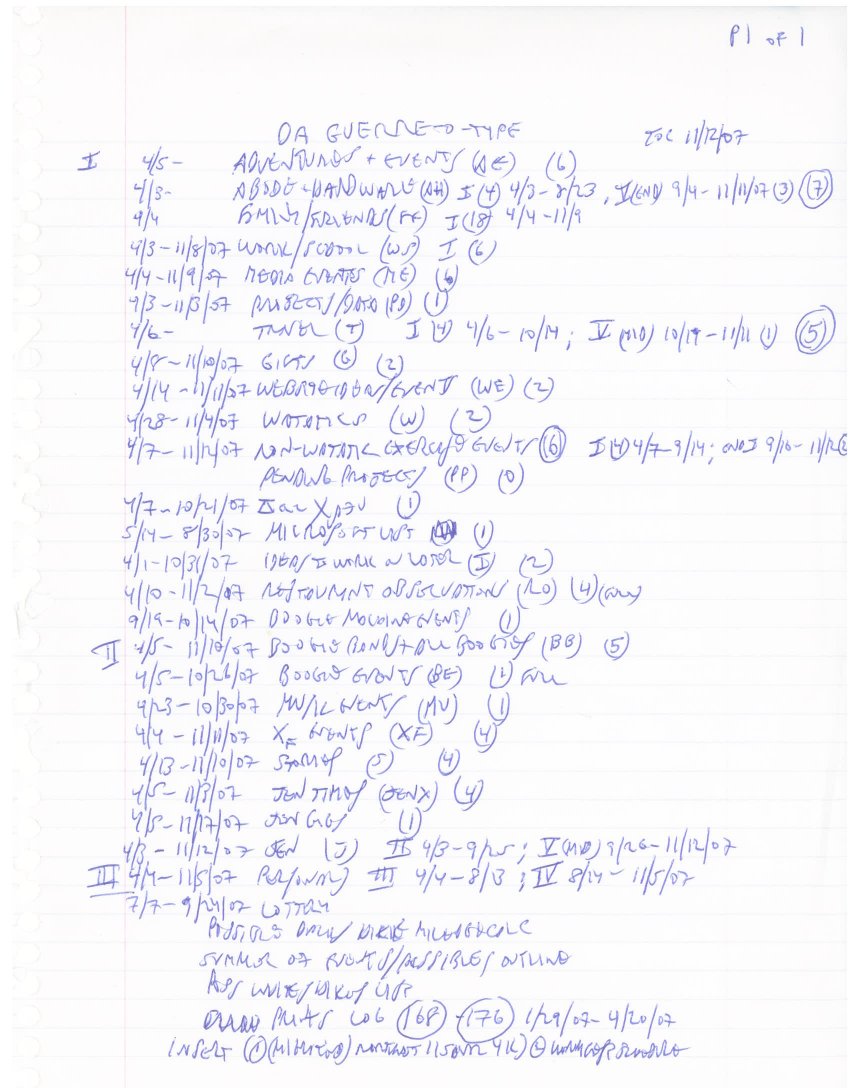 P1 OF 1
DA GUERRE-O-TYPE TOC 11/12/07
I 4/5- ADVENTURES + EVENTS (AE) (6)
4/3- ABODE + HARDWARE (AH) I (4) 4/3-8/23, (END) 9/4-11/11/07 (3) (7)
4/4 FAMILY/FRIENDS (FF) I (18) 4/4-11/9
4/3-11/8/07 WORK/SCHOOL (WS) I (6)
4/4-11/9/07 MEDIA EVENTS (ME) (6)
9/3-11/3/07 PROJECTS/DATA (PD) (1)
4/6- TRAVEL (T) I (4) 4/6-10/14; V (MD) 10/19-11/11 (1) (5)
4/8-11/10/07 GIFTS (G) (2)
4/14-11/11/07 WEBSITE IDEAS/EVENTS (WE) (2)
4/28-11/4/07 WATATICS (W) (2)
4/7-11/12/07 NON-WATATIC EXERCISE EVENTS (6) I (4) 4/7-9/14; END I 9/16-11/12
PENDING PROJECTS (PP) (0)
4/7-10/21/07 (1)
5/14-8/30/07 MICROSOFT LIST (1)
4/1-10/31/07 IDEAS TO WORK ON LATER (I) (2)
4/10-11/2/07 RESTAURANT OBSERVATIONS (RO) (4) (FULL)
9/19-10/14/07 BOOGIE MOLDING EVENTS (1)
II 4/5-11/10/07 BOOGIE BAND/+ ALL BOOGIES (BB) (5)
4/5-10/26/07 BOOGIE EVENTS (BE) (1) FULL
4/23-10/30/07 MUSIC EVENTS (MU) (1)
4/4-11/11/07 XF EVENTS (XF) (4)
4/13-11/10/07 STORIES (S) (4)
4/5-11/3/07 JEN TIMES (JENX) (4)
4/5-11/7/07 JEN GIGS (1)
4/3-11/12/07 JEN (J) II 4/3-9/25; V (MD) 9/26-11/12/07
III 4/4-11/5/07 PERSONAL III 4/4-8/13; IV 8/14-11/5/07
7/7-9/24/07 LOTTERY
POSSIBLE DAILY BIKE MILEAGE CALC
SUMMER 07 EVENTS/POSSIBLES OUTLINE
LIST
LOG 168-176 1/29/07-4/20/07
INSERT (1) (2)